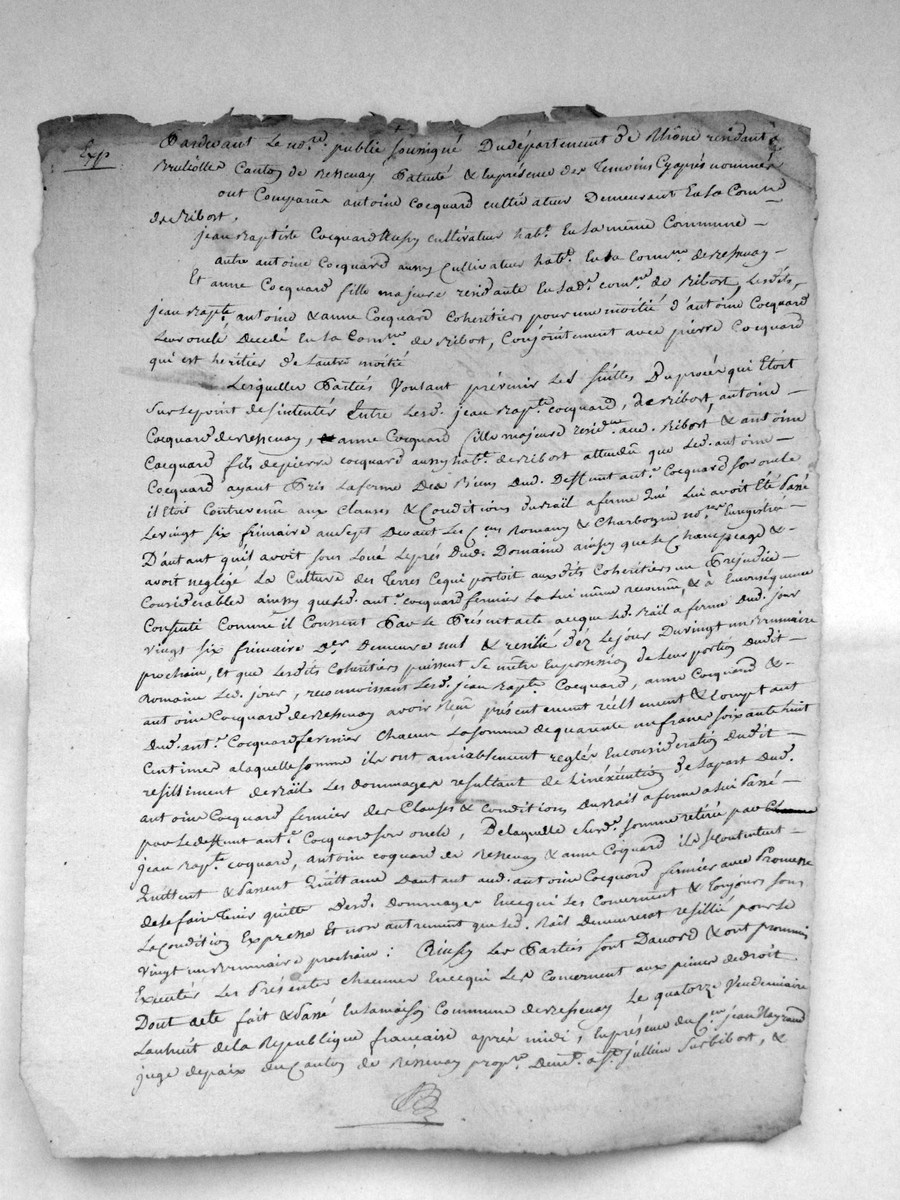 Exp
Pardevant Le no.re public soussigné Du département De Rhône residant a
Brullolle Canton de Bessenay Patenté & En présence des Temoins Cyaprés nommés
ont Comparus antoine Cocquard cultivateur Demeurant En La Com.ne
de Ribort,
jean Baptiste Cocquard Aussy cultivateur hab.t En la même Commune –
autre antoine Cocquard aussy Cultivateur hab.t En La Com.ne de Bessenay –
Et anne Cocquard fille majeure residante En lad.e com.ne de Ribort, Lesdits
jean Bapt.e antoine & anne Cocquard Coheritiers pour une moitié d'antoine Cocquard
Leur oncle Decedé En la Com.ne de Ribort, Conjointement avec pierre Cocquard
qui est heritier de Lautre moitié
Lesquelles Parties Voulant prévenir Les suittes Du procès qui Etoit
Sur le point de sintenter Entre Lesd. jean Bapt.e cocquard, de Ribort, antoine –
Cocquard de Bessenay, & anne Cocquard fille majeure resid.te aud. Ribort & antoine
Cocquard fils de pierre cocquard aussy hab.t de Ribort attendu que Led. antoine –
Cocquard ayant Pris La ferme Des Biens Dud. Deffunt ant.e Cocquard son oncle
il Etoit Contrevenu aux Clauses & Conditions du Bail a ferme qui Lui avoit Eté Passé
Le vingt six frimaire an sept Devant Les C.ens Romany & Charbogne no.res Enregistré –
D'autant quil avoit sous Loué Leprés Dud. Domaine ainsy que Le Champeage & –
avoit neglegé La Culture des Terres Cequi portoit auxdits Coheritiers un Prejudice –
Considerable ainsy que Led. ant.e cocquard fermier La Lui même reconnu, & à En conséquence
Consenti Comme il Consent Par Le Présent acte aceque Led. Bail a ferme Dud. jour
vingt six frimaire D.er Demeure nul & resilié déz Le jour Du vingt un Brumaire
prochain, Et que Lesdits Coheritiers puissent Se mettre En possession de Leur portion Dudit –
Domaine Led. jour, reconnoissant Lesd. jean Bapt.e Cocquard, anne Cocquard & –
antoine Cocquard de Bessenay avoir Reçu présentement réellement & Comptant
Dud. ant.e Cocquard fermier Chacun La somme de quarente un franc soixante huit
Centimes a laquelle somme ils ont amiablement reglés En Consideration Dudit –
resilliment de Bail Les dommages resultant de L'inexécution De La part Dud.
antoine Cocquard fermier des Clauses & Conditions Du Bail a ferme a lui Passé –
par Le deffunt ant.e Cocquard son oncle, De laquelle Susd. somme retirée par
jean Bapt.e cocquard, antoine coquard de Bessenay & anne Coquard ils se contentent –
Quittent & Passent Quittance Dautant aud. antoine Cocquard fermier avec Promesse
de le faire Tenir quitte Desd. dommages En cequi Les Concernent & Toujours sous
La condition Expresse Et non autrement que Led. Bail Demeurera resillié pour Le
vingt un Brumaire prochain : Ainsy Les Parties sont Daccord & ont promis
Executer Les Présentes chacunes En cequi Les Concernent aux peines de droit.
Dont acte fait & Passé En la maison Commune de Bessenay Le quatorze Vendemiaire
Lan huit de La Republique francaise aprés midi, En présence du C.en jean Raynaud
juge de paix Du Canton de Bessenay prop.re Dem.t a S.t Jullien Sur bibort, &